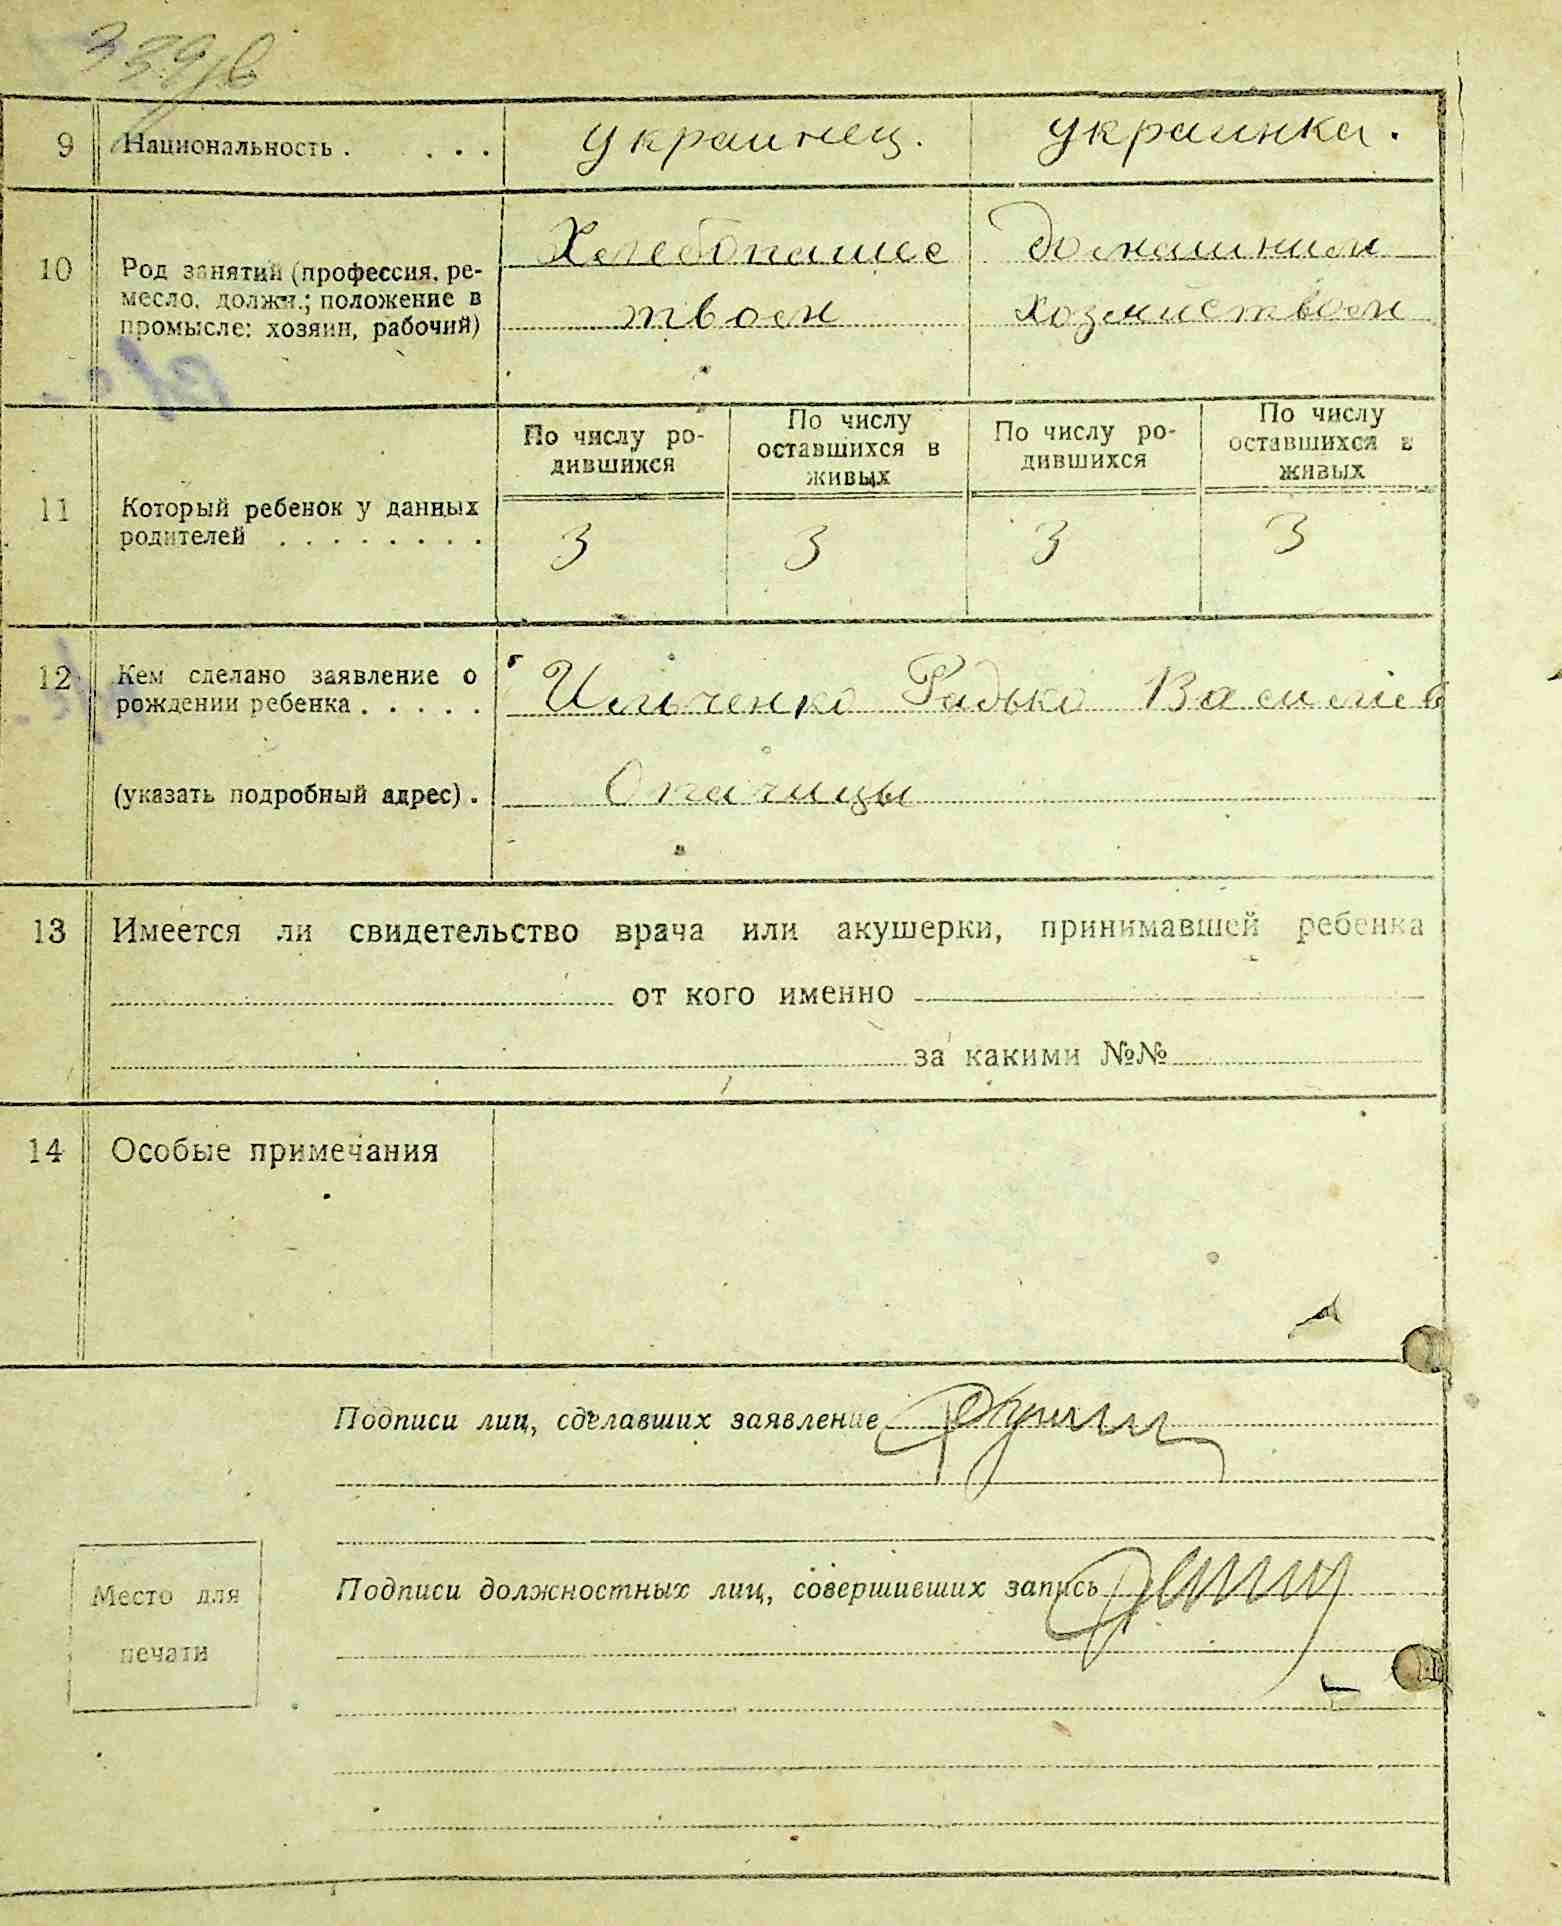 339/в
9 Национальность . . . . украинец. украинка.
10 Род занятий (профессия, ре-
месло, должн.; положение в
промысле: хозяин, рабочий)
Хлебопашес домашним
твом хозяйством
11 Который ребенок у данных
родителей . . . . . . . .
По числу ро-
дившихся
По числу
оставшихся в
живых
По числу ро-
дившихся
По числу
оставшихся в
живых
3 3 3 3
12 Кем сделано заявление о
рождении ребенка . . . . .
Ильченко Радько Василiев
(указать подробный адрес) . Опачицы
13 Имеется ли свидетельство врача или акушерки, принимавшей ребенка
от кого именно
за какими №№
14 Особые примечания
Подписи лиц, сделавших заявление
Подписи должностных лиц, совершивших запись
Место для
печати